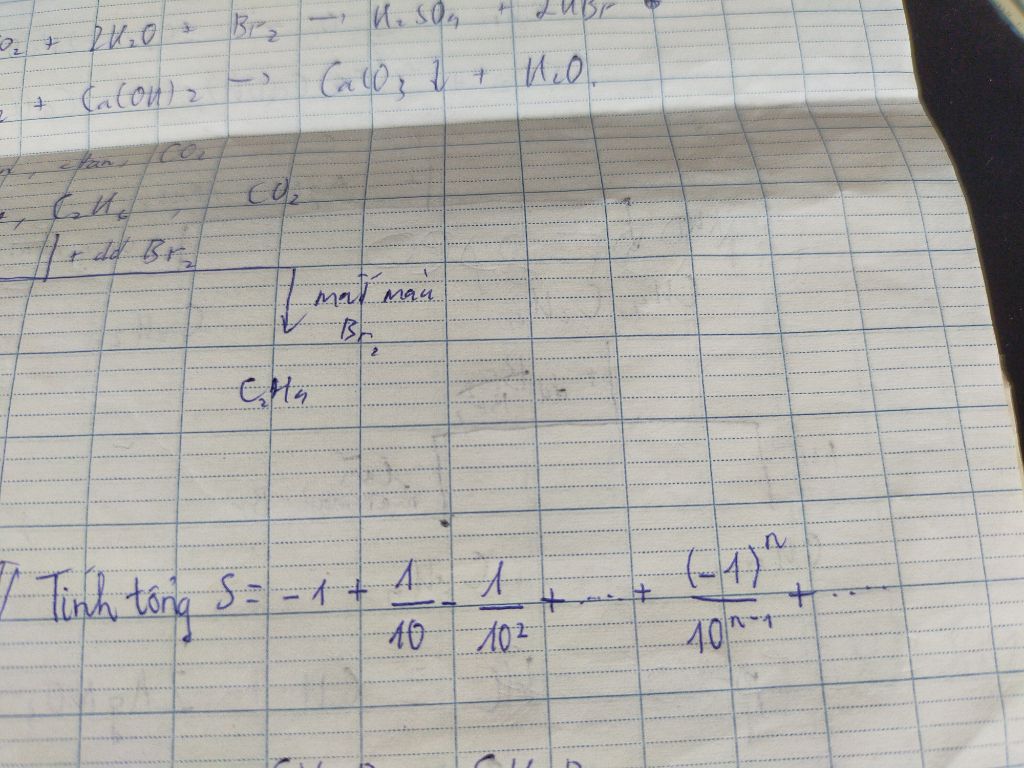 O₂ + 2H₂O + Br₂ → H₂SO₄ + 2HBr
₂ + Ca(OH)₂ → CaCO₃ ↓ + H₂O.
CO₂
C₂H₆, CO₂
+ dd Br₂
mất màu
Br₂
C₂H₄
Tính tổng S = -1 + 1/10 - 1/10² + .... + (-1)ⁿ/10ⁿ⁻¹ + .....